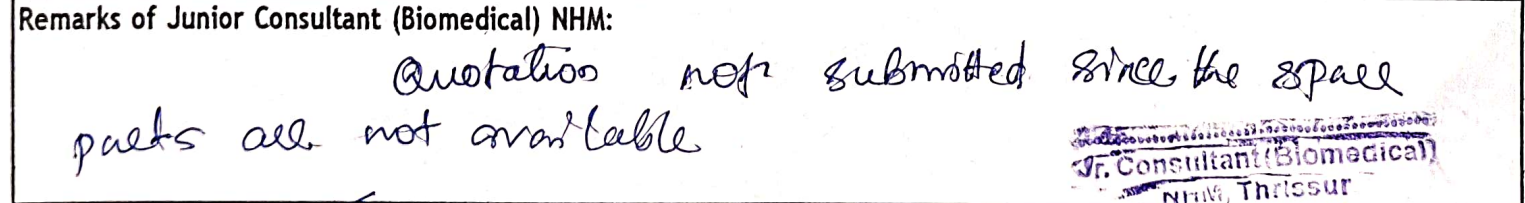 Remarks of Junior Consultant (Biomedical) NHM:
Quotation not submitted since the spare
parts are not available
Jr. Consultant (Biomedical)
NHM, Thrissur